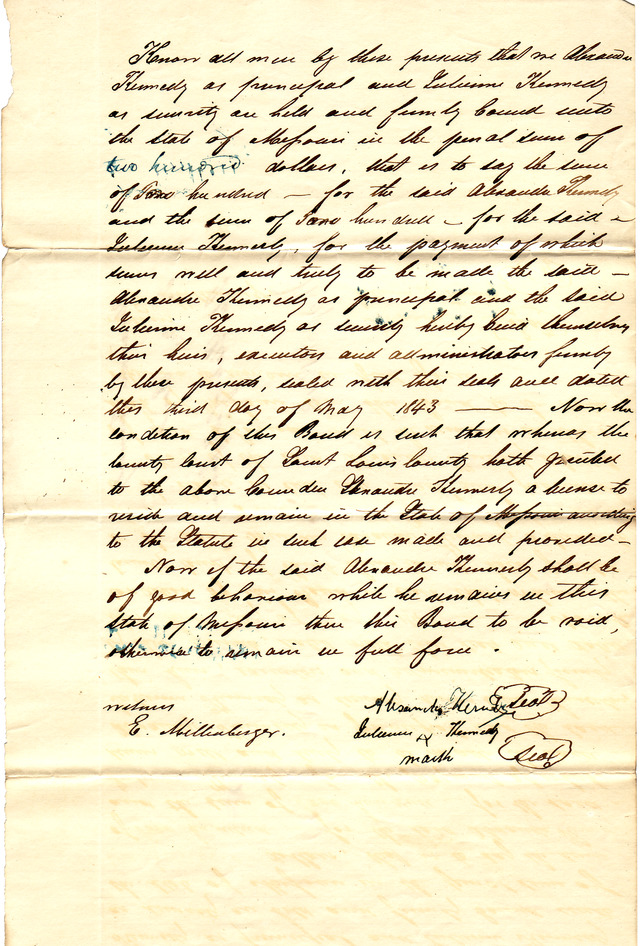 Know all men by these presents that we Alexandre
Kennedy as principal and Julienne Kennedy
as security are held and firmly bound unto
the state of Missouri in the penal sum of
two hundred dollars, that is to say the sum
of Two hundred — for the said Alexandre Kennedy
and the sum of Two hundred — for the said —
Julienne Kennerly, for the payment of which
sums well and truly to be made the said —
Alexandre Kennedy as principal and the said
Julienne Kennedy as security hereby bind themselves
their heirs, executors and administrators firmly
by these presents, sealed with their seals and dated
this third day of May 1843 —— Now the
condition of this Bond is such that whereas the
County Court of Saint Louis County hath granted
to the above bounden Alexandre Kennerly a license to
reside and remain in the State of Missouri according
to the Statute in such case made and provided —
Now if the said Alexandre Kennerly shall be
of good behaviour while he remains in this
state of Missouri then this Bond to be void,
otherwise to remain in full force.
witness
E. Miltenberger.
Alexandre Kennedy Seal
Julienne X Kennedy
mark Seal